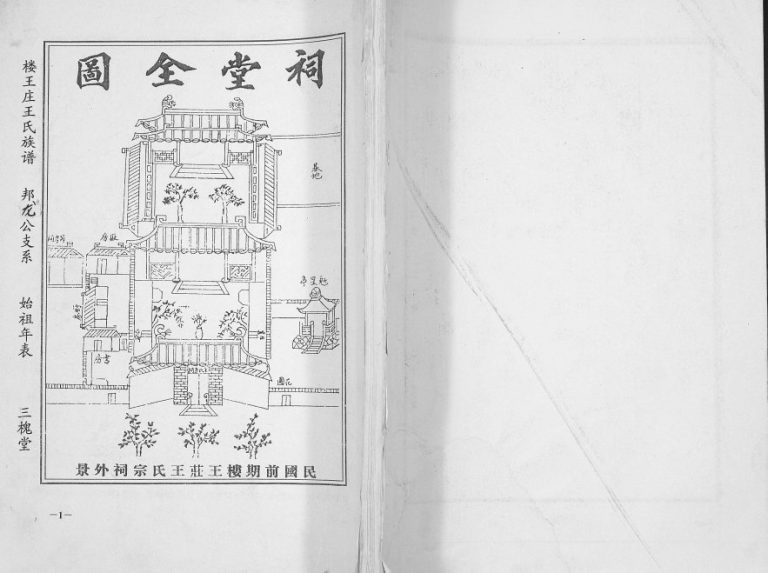 祠堂全圖
楼王庄王氏族谱 邦龙公支系 始祖年表 三槐堂
墓地
魁星亭
書房
花園
民國前期樓王莊王氏宗祠外景
—1—